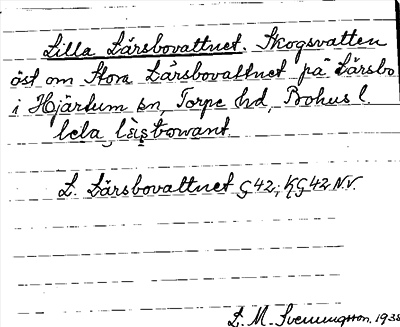 Lilla Lärsbovattnet. Skogsvatten
öst om Stora Lärsbovattnet på Lärsbo
i Hjärtum sn, Torpe hd, Bohus l.
L. Lärsbovattnet G42; KG42 N.V.
E. M. Svenungsson, 1938